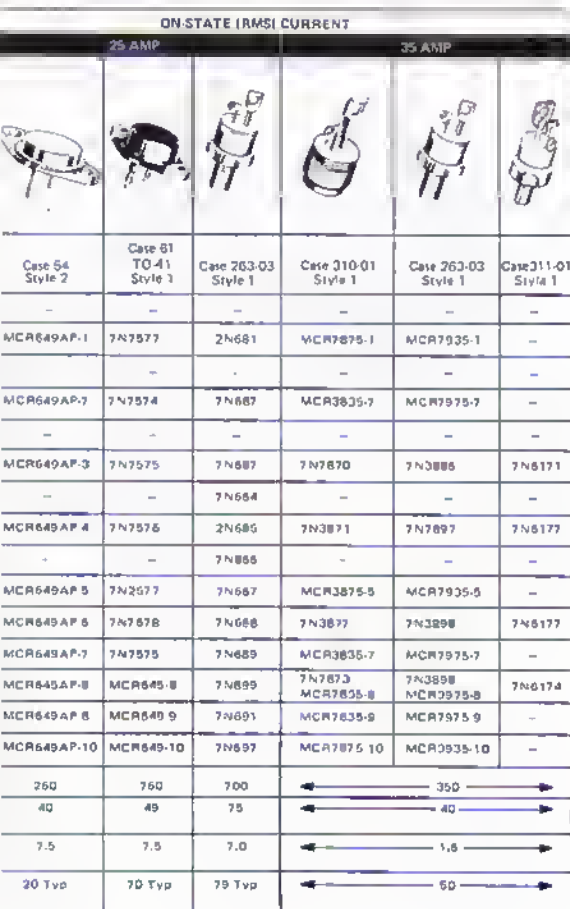 ON-STATE (RMS) CURRENT
25 AMP 35 AMP
Case 54 Style 2 Case 61 TO-41 Style 1 Case 263-03 Style 1 Case 310-01 Style 1 Case 263-03 Style 1 Case 311-01 Style 1
– – – – – –
MCR649AP-1 7N7577 2N681 MCR7875-1 MCR7935-1 –
– – – – –
MCR649AP-7 7N7574 7N687 MCR3835-7 MCR7975-7 –
– – – – – –
MCR649AP-3 7N7575 7N687 7N7870 7N3886 7N6171
– – 7N664 – – –
MCR649AP-4 7N7576 2N685 7N3871 7N7897 7N6177
– – 7N866 – – –
MCR649AP-5 7N2577 7N667 MCR3875-5 MCR7935-5 –
MCR649AP-6 7N7678 7N688 7N3877 7N3898 7N6177
MCR649AP-7 7N7575 7N689 MCR3835-7 MCR7975-7 –
MCR645AP-8 MCR645-8 7N699 7N7873 MCR7835-8 7N3898 MCR3975-8 7N6174
MCR649AP-8 MCR649-9 7N691 MCR7835-9 MCR7975-9 –
MCR649AP-10 MCR649-10 7N697 MCR7875-10 MCR3935-10 –
260 760 700 350
40 49 75 40
7.5 7.5 7.0 1.6
20 Typ 7D Typ 79 Typ 50